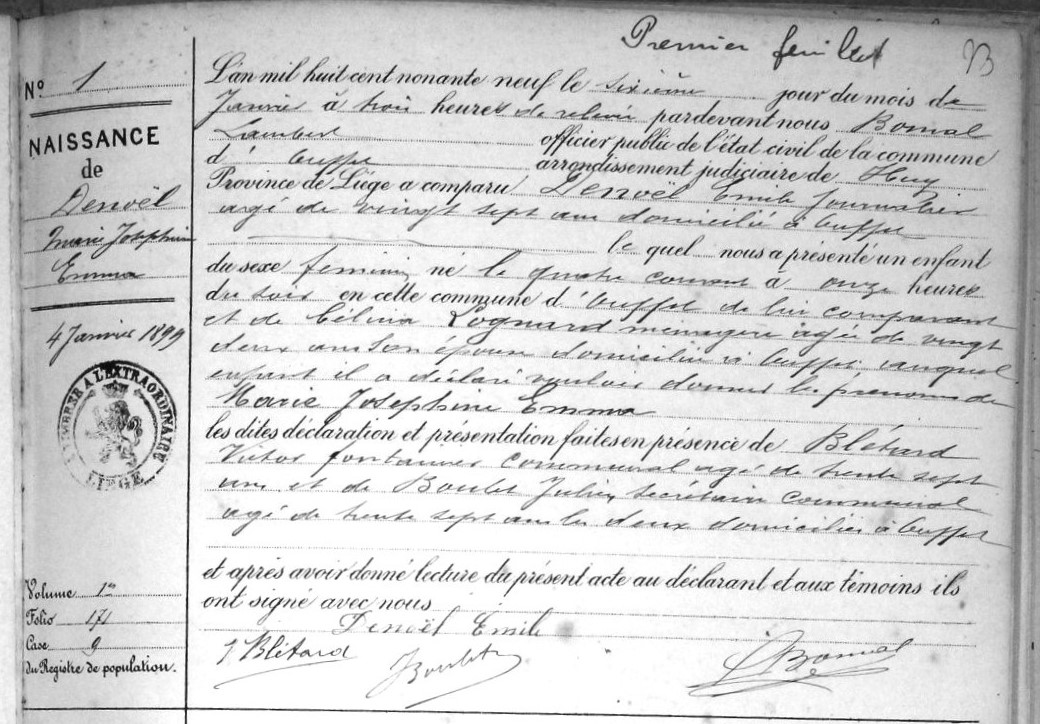 Premier feuillet
93
Nº 1
NAISSANCE
de
Denoël
Marie Joséphine
Emma
4 Janvier 1899
TIMBRE A L'EXTRAORDINAIRE
LIEGE
Volume 1er
Folio 171
Case 9
du Registre de population.
L'an mil huit cent nonante neuf le sixième jour du mois de
Janvier à trois heures de relevée pardevant nous Bomal
Lambert officier public de l'état civil de la commune
d' Ouffet arrondissement judiciaire de Huy
Province de Liége a comparu Denoël Emile Journalier
agé de vingt sept ans domicilié à Ouffet
le quel nous a présenté un enfant
du sexe feminin né le quatre courant à onze heures
du soir en cette commune d'Ouffet de lui comparant
et de Célina Lognard ménagère agée de vingt
deux ans son épouse domiciliée à Ouffet auquel
enfant il a déclaré vouloir donner les prénoms de
Marie Joséphine Emma
les dites déclaration et présentation faites en présence de Blétard
Victor fontainier communal agé de trente sept
ans et de Boulet Julien secrétaire communal
agé de trente sept ans les deux domiciliés à Ouffet
et après avoir donné lecture du présent acte au déclarant et aux témoins ils
ont signé avec nous
Denoël Emile
V Blétard
J Boulet
L Bomal